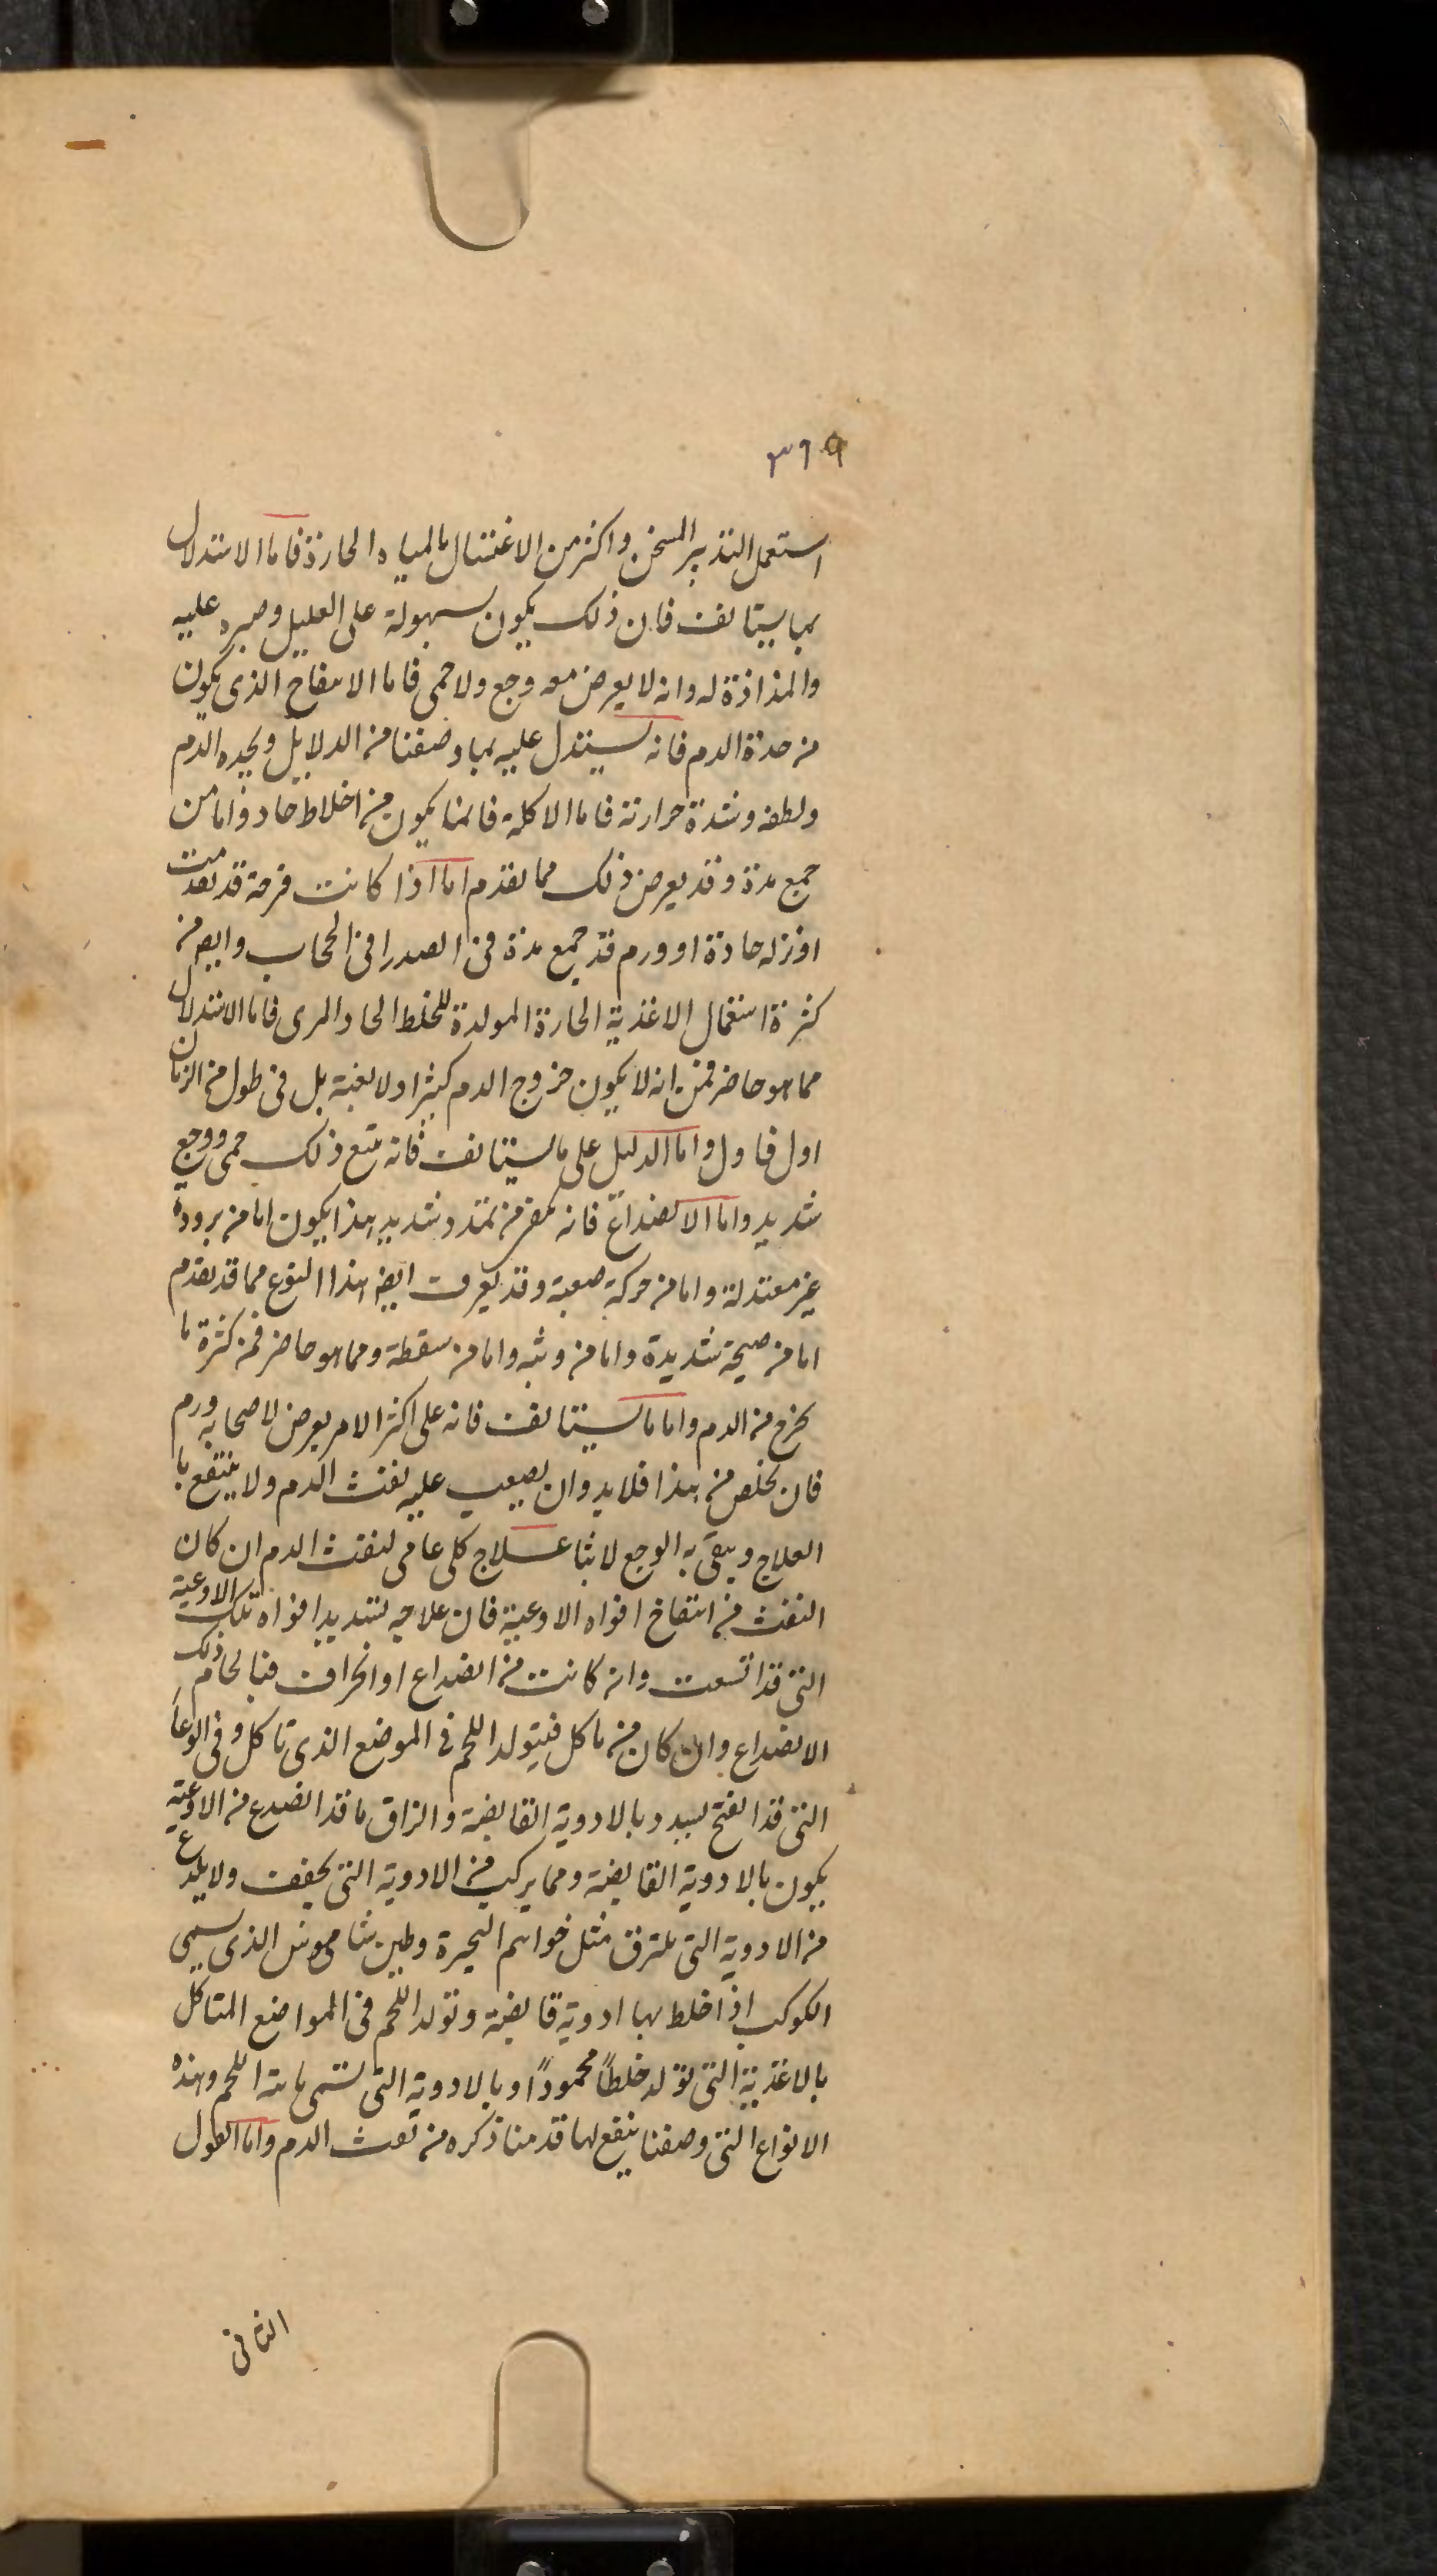 ٣٦٩
استعمل التدبير المسخن واكثر من الاغتسال بالمياه الحارة فاما الاستدلال
بما يستانف فان ذلك يكون بسهولة على العليل وصبره عليه
والمذاذة له وانه لا يعرض معه وجع ولا حمى فاما الانفتاح الذى يكون
من حدة الدم فانه يستدل عليه بما وصفنا من الدلايل وبحده الدم
ولطفه وشدة حرارته فاما الاكلة فانما يكون من اخلاط حادة واما من
جمع مدة وقد يعرض ذلك مما تقدم اما اذا كانت قرحة قد تقدمت
او نزله حادة او ورم قد جمع مدة فى الصدر او فى الحجاب وايض من
كثرة استعمال الاغذية الحارة المولدة للخلط الحاد المرى فاما الاستدلال
مما هو حاضر فمن انه لا يكون خروج الدم كثيرا ولا بغتة بل فى طول من الزمان
اول فاول واما الدليل على ما يستانف فانه يتبع ذلك حمى ووجع
شديد واما الانصداع فانه يعرض من تمدد شديد هذا يكون اما من برودة
غير معتدلة واما من حركة صعبة وقد يعرف ايض هذا النوع مما قد تقدم
اما من صيحة شديدة واما من وثبه واما من سقطة ومما هو حاضر فمن كثرة ما
يخرج من الدم واما ما يستانف فانه على اكثر الامر يعرض لاصحابه ورم
فان تخلص من هذا فلابد وان يصعب عليه نفث الدم ولا ينتفع با
العلاج ويبقى به الوجع لابثا علاج كلى عامى لنفث الدم ان كان
النفث من انتفاخ افواه الاوعية فان علاجه تشديد افواه تلك الاوعية
التى قد اتسعت وان كانت من انصداع او انخراق فبالحام ذلك
الانصداع وان كان من تاكل فيتولد اللحم فى الموضع الذى تاكل وفى الوعا
التى قد انفتح يسد وبالادوية القابضة والزاق ما قد انصدع من الاوعية
يكون بالادوية القابضة ومما يركب من الادوية التى يجفف ولا يلدع
من الادوية التى تلتزق مثل خواتم البحيرة وطين شاموس الذى يسمى
الكوكب اذا خلط بها ادوية قابضة وتولد اللحم فى المواضع المتاكل
بالاغذية التى تولد خلطاً محموداً وبالادوية التى تسمى نابتة اللحم وهذه
الانواع التى وصفنا ينفع لها قدمنا ذكره من نفث الدم واما القول
الثانى